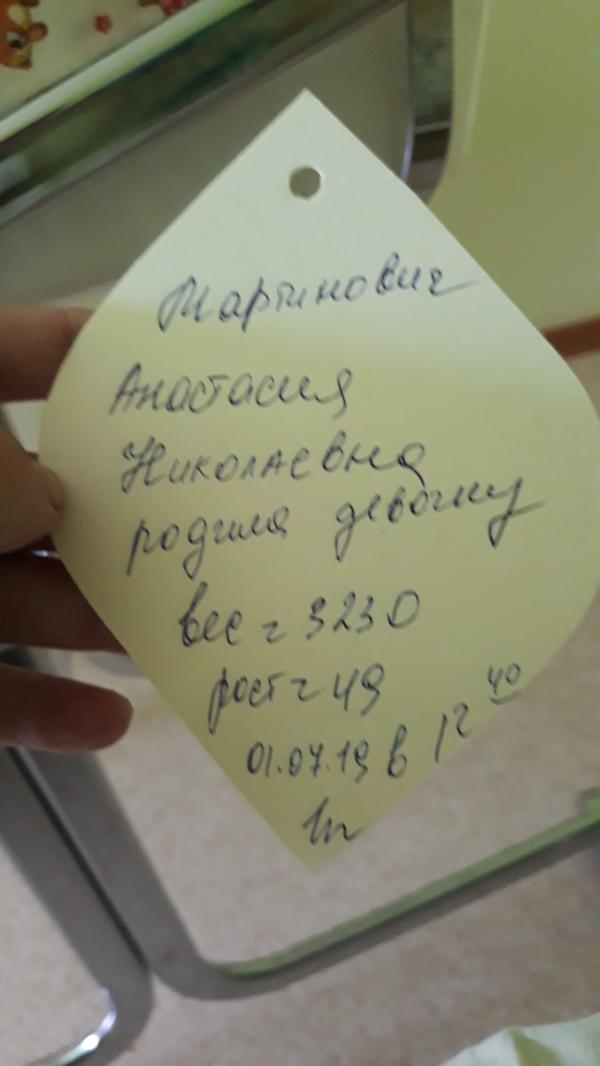 Мартинович
Анастасия
Николаевна
родила девочку
вес = 3230
рост = 49
01.07.19 в 12 40